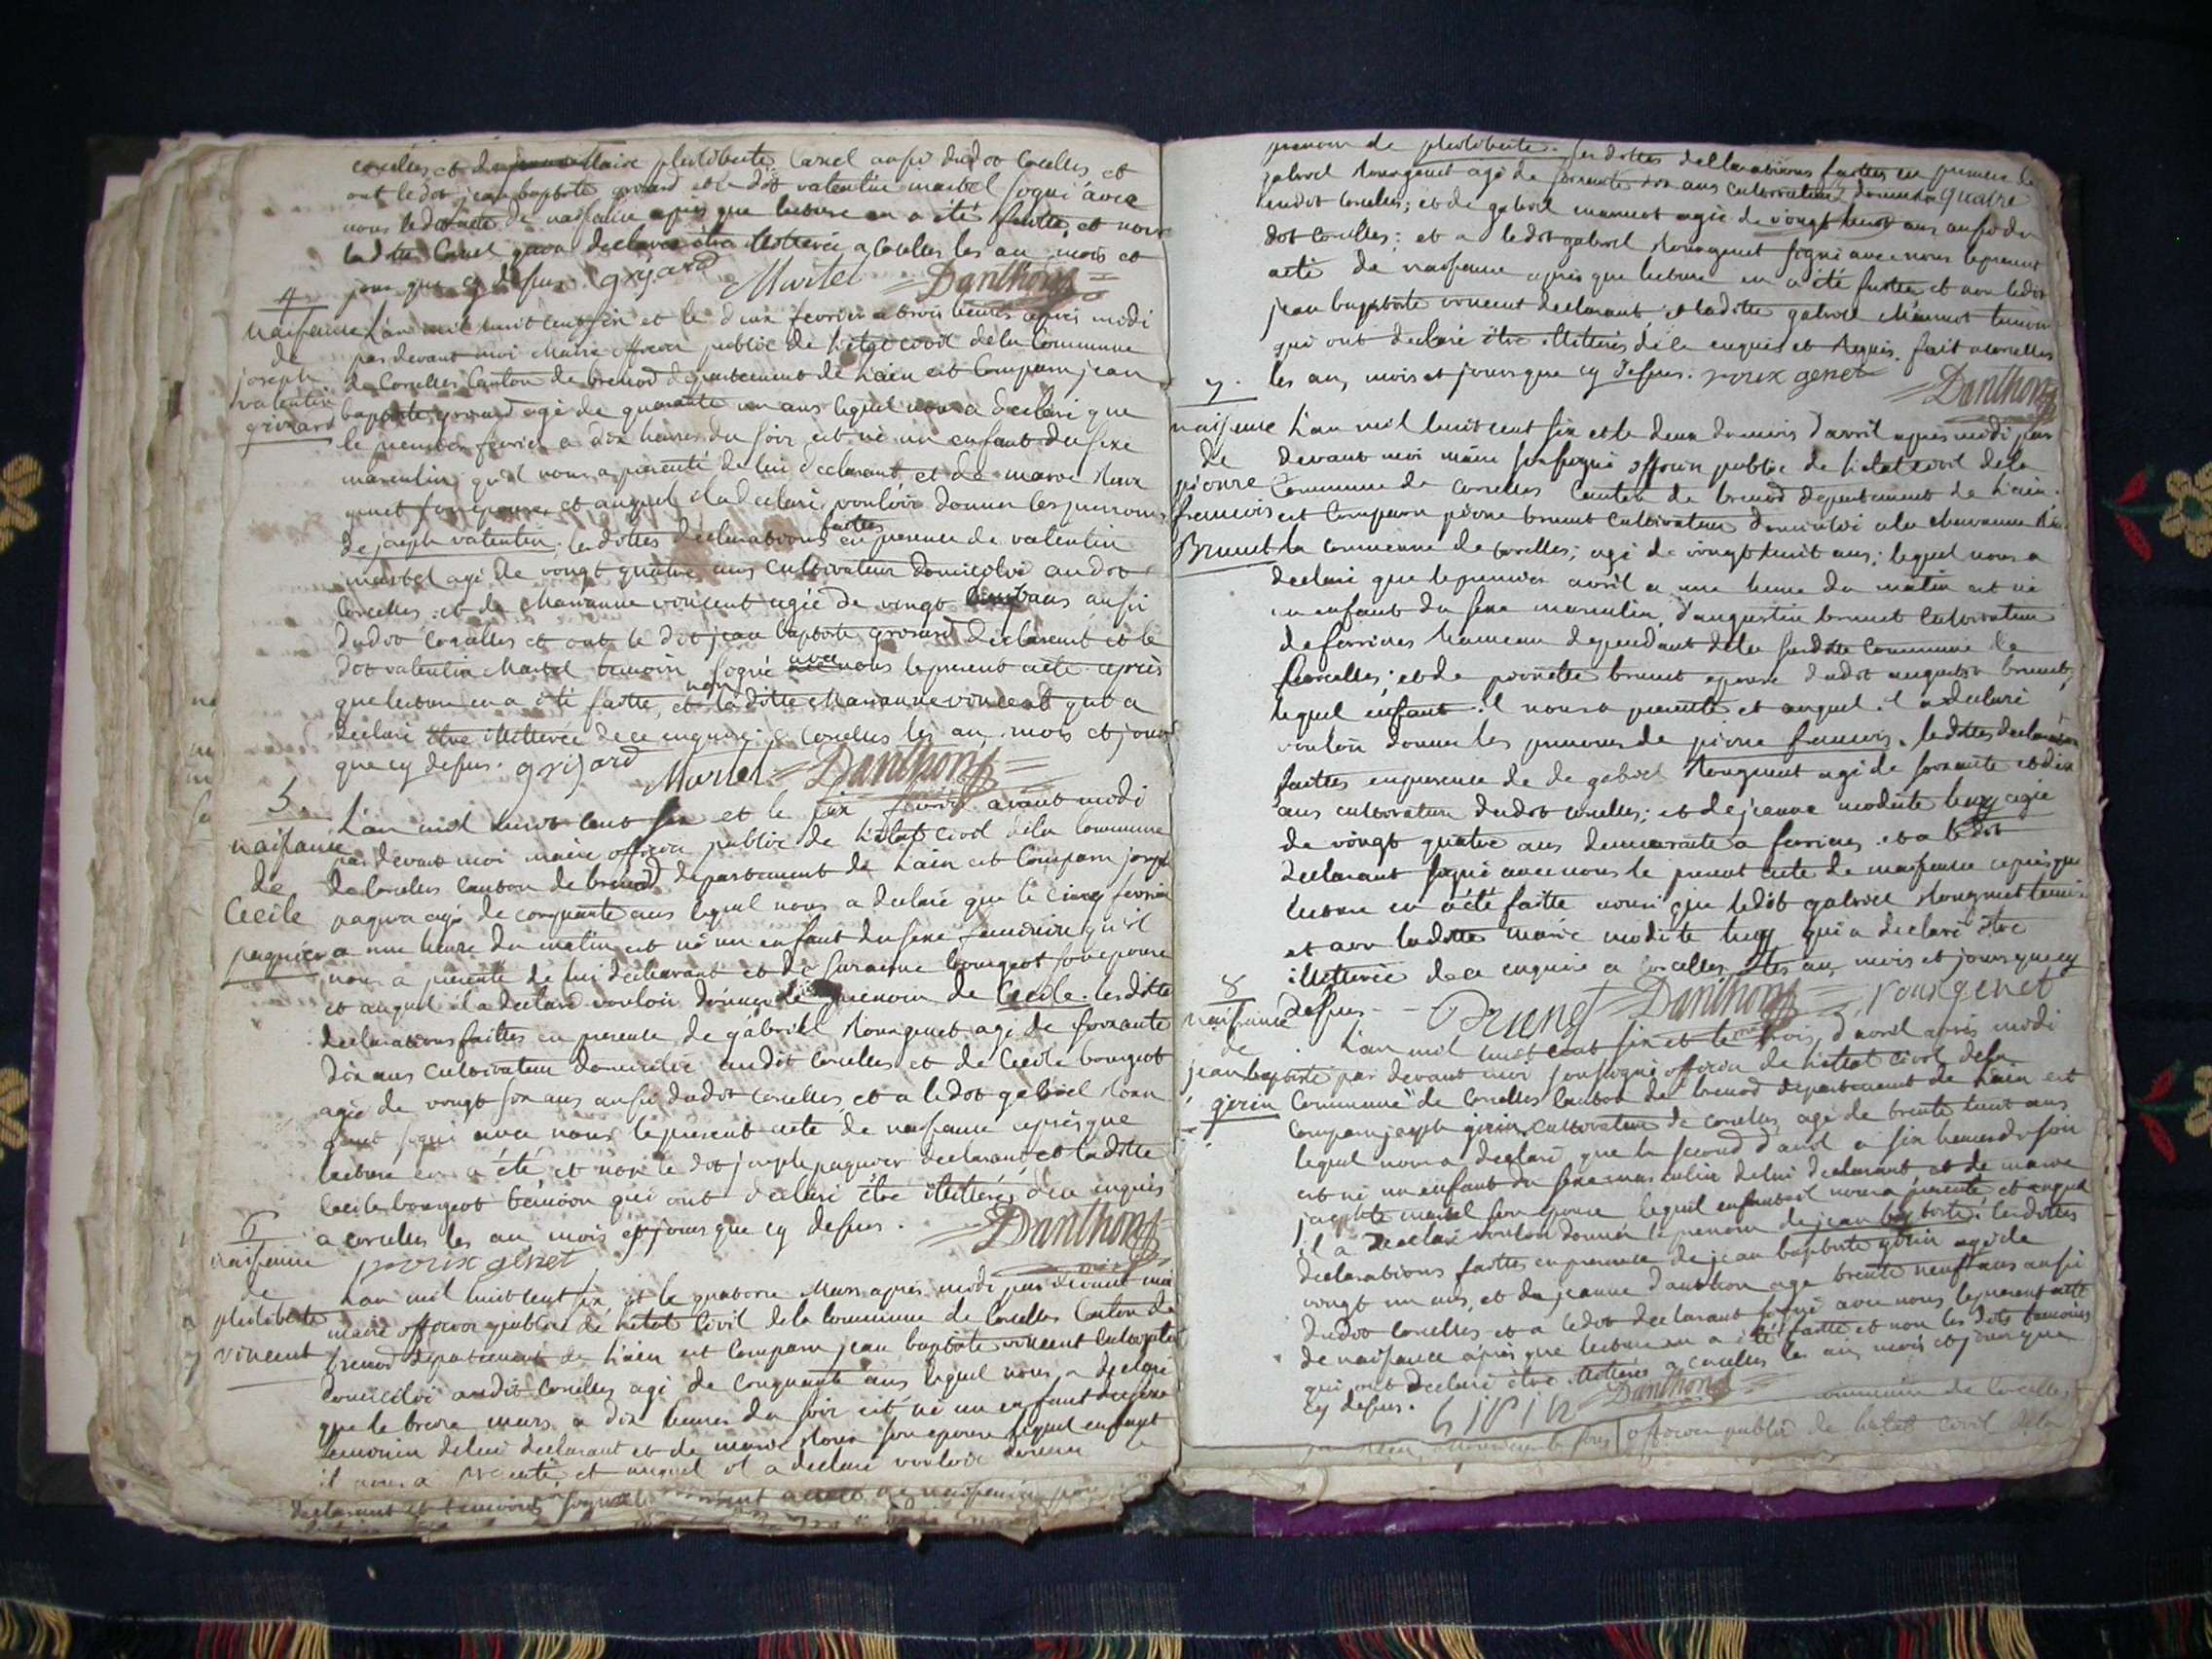 corcelles et de Claire philiberte Carrel aussi dudot Corcelles et
ont ledot jean baptiste grosard et le dot valentin martel signé avec
nous ledot acte de naissance après que lecture en a été faitte, et non
la ditte Carrel qui a declaré être illitterée a Corcelles les an mois et
jour que cy dessus. grisard Martel = Danthon =
4
naissance
de
joseph
valentin
grosard
L'an mil huit cent six et le deux fevrier a trois heures après midi
par devant moi Maire officier public de l'etat civil de la Commune
de Corcelles Canton de brenod departement de L'ain est Comparu jean
baptiste grosard agé de quarante un ans lequel nous a declaré que
le premier fevrier a dix heures du soir est né un enfant du sexe
masculin, qu'il nous a presenté de lui declarant, et de marie Roux
genet son epouse, et auquel il a declaré vouloir donner les prenoms
de joseph valentin. les dottes declarations faittes en presence de valentin
martel agé de vongt quatre ans cultivateur domicilié audot
Corcelles; et de Marianne vincent agée de vingt ans aussi
dudot Corcelles et ont le dit jean baptiste grosard declarant et le
dot valentin Martel temoin signé avec nous le present acte après
que lecture en a été faitte, et non la ditte Marianne vincent qui a
declaré être illitterée de ce enquise. a Corcelles les an, mois et jour
que cy dessus. grisard Martel = Danthon =
5
naissance
de
Cecile
paquier
L'an mil huit cent six et le six fevrier avant midi
par devant moi maire officier public de l'etat civil de la Commune
de Corcelles Canton de brenod departement de L'ain est Comparu joseph
paquier agé de conquante ans lequel nous a declaré que le cinq fevrier
a une heure du matin est né un enfant du sexe feminin qu'il
nous a presenté de lui declarant et de suzanne bourgeot son epouse
et auquel il a declaré vouloir donner le prenom de Cecile. les dotte
declarations faittes en presence de gabriel Rouxgenet agé de soixante
dix ans cultivateur domicilié audot Corcelles et de Cecile bourgeot
agée de vongt six ans aussi dudot corcelles, et a ledot gabriel Roux
genet signé avec nous le present acte de naissance après que
lecture en a été, et non le dot joseph paquier declarant et la ditte
Cecile bourgeot temoin qui ont declaré être illitterés de ce enquis
a corcelles les an, mois et jour que cy dessus. = Danthon =
rouxgenet
6
naissance
de
philiberte
vincent
L'an mil huit cent six, et le quatorze Mars après midi par devant moi
maire officier public de l'etat Civil de la Commune de Corcelles Canton de
brenod departement de L'ain est Comparu jean baptiste vincent cultivateur
domicilié audit Corcelles agé de conquante ans lequel nous a declaré
que le treize mars a dix heures du soir est né un enfant du sexe
femonin de lui declarant et de marie Roux son epouse lequel enfant
il nous a presenté, et auquel il a declaré vouloir donner le
declarant et temoins
prenom de philiberte. les dottes declarations faittes en presence de
gabriel Rouxgenet agé de soixante dix ans cultivateur
audot Corcelles; et de gabriel mermet agée de vongt huit ans, aussi du
dot Corcelles; et a ledot gabriel Rouxgenet signé avec nous le present
acte de naissance après que lecture en a été faitte et non ledot
jean baptiste vincent declarant et la ditte gabriel Mermet temoin
qui ont declaré être illitterés de ce enquis et Requis. fait a Corcelles
les an, mois et jours que cy dessus. rouxgenet = Danthon
7.
naissance
de
pierre
francois
Brunet
L'an mil huit cent six et le deux du mois d'avril après midi par
devant moi maire soussigné officier public de l'etat civil de la
Commune de Corcelles Canton de brenod departement de L'ain.
est Comparu pierre brunet cultivateur domicilié a la
la commune de Corcelles; agé de vongt huit ans; lequel nous a
declaré que le premier avril a une heure du matin est né
un enfant du sexe masculin, d'augustin brunet cultivateur
de ferrieres hameau dependant de la susditte Commune de
Corcelles; et de pierrette brunet epouse dudot augustin brunet,
lequel enfant il nous a presenté et auquel il a declaré
vouloir donner les prenoms de pierre francois. les dittes declarations
faittes en presence de de gabriel Rouxgenet agé de soixante et dix
ans cultivateur dudot corcelles; et de jeanne modeste hugy agée
de vongt quatre ans demeurante a ferrieres et a ledot
declarant signé avec nous le present acte de naissance après que
lecture en a été faitte ainsi que ledot gabriel Rouxgenet temoin
et non laditte marie modeste hugy qui a declaré être
illitterée de ce enquise a Corcelles les an, mois et jours que cy
dessus. Brunet = Danthon = rouxgenet
8
naissance
de
jean baptiste
girin
L'an mil huit cent six et le trois d'avril après midi
par devant moi soussigné officier de l'ettat civil de la
Commune de Corcelles Canton de brenod departement de L'ain est
Comparu joseph girin cultivateur de corcelles, agé de trente huit ans
lequel nous a declaré que le second d'avril a six heures du soir
est né un enfant du sexe masculin de lui declarant et de marie
josephte martel son epouse lequel enfant il nous a presenté et auquel
il a declaré vouloir donner le prenom de jean baptiste. les dittes
declarations faittes en presence de jean baptiste girin agé de
vongt un ans, et de jeanne danthon agée trente neuf ans aussi
dudot Corcelles et a ledot declarant signé avec nous le present acte
de naissance après que lecture en a été faitte et non les dits temoins
qui ont declaré être illitterés a corcelles les an, mois et jour que
cy dessus. girin Danthon =
commune de Corcelles
officier public de l'etat civil de la